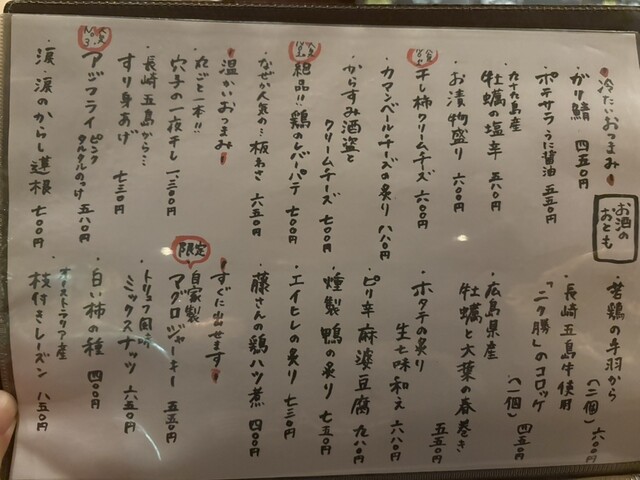 お酒の
おとも
冷たいおつまみ
・がり鯖 四五〇円
・ポテサラうに醤油 五五〇円
・九十九島産
牡蠣の塩辛 五八〇円
・お漬物盛り 六〇〇円
・干し柿クリームチーズ 六〇〇円
・カマンベールチーズの炙り 八八〇円
・からすみ酒盗と
クリームチーズ 七〇〇円
・絶品!!鶏のレバーパテ 七〇〇円
・なぜか人気の…板わさ 六五〇円
温かいおつまみ
・たごと一本!!
穴子の一夜干し 一、三〇〇円
・長崎五島から…
すり身あげ 七三〇円
人気
No.3
・アジフライ ピンク
タルタルのっけ 五八〇円
・涙・涙のからし蓮根 七〇〇円
・若鶏の手羽から
(二個) 六〇〇円
・長崎五島牛使用
「ニク勝」のコロッケ
(一個) 四五〇円
・広島県産
牡蠣と大葉の春巻き
五五〇円
・ホタテの炙り
生七味和え 六八〇円
・ピリ辛麻婆豆腐 九八〇円
・燻製鴨の炙り 七五〇円
・エイヒレの炙り 七三〇円
・藤さんの鶏ハツ煮 四〇〇円
すぐに出せます
限定
・自家製
マグロジャーキー 五五〇円
・トリュフ風味
ミックスナッツ 六五〇円
・白い柿の種 四〇〇円
・オーストラリア産
枝付きレーズン 八五〇円